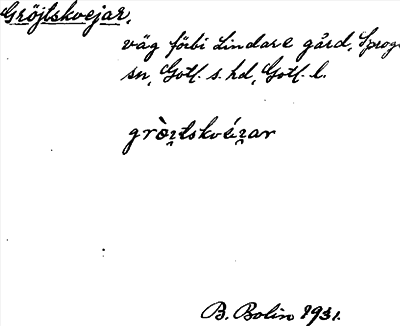 Gröjtskvejar,
väg förbi Lindare gård, Sproge
sn, Gotl. s. hd, Gotl. l.
gròi̯tskvéi̯ar
B. Bolin 1931.